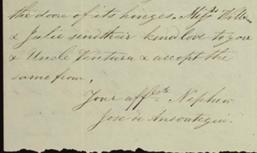 the door of its hinges. Miss
& Julie send their kind love to you
& Uncle Ventura & accept the
same from,
Your affte Nephew
José